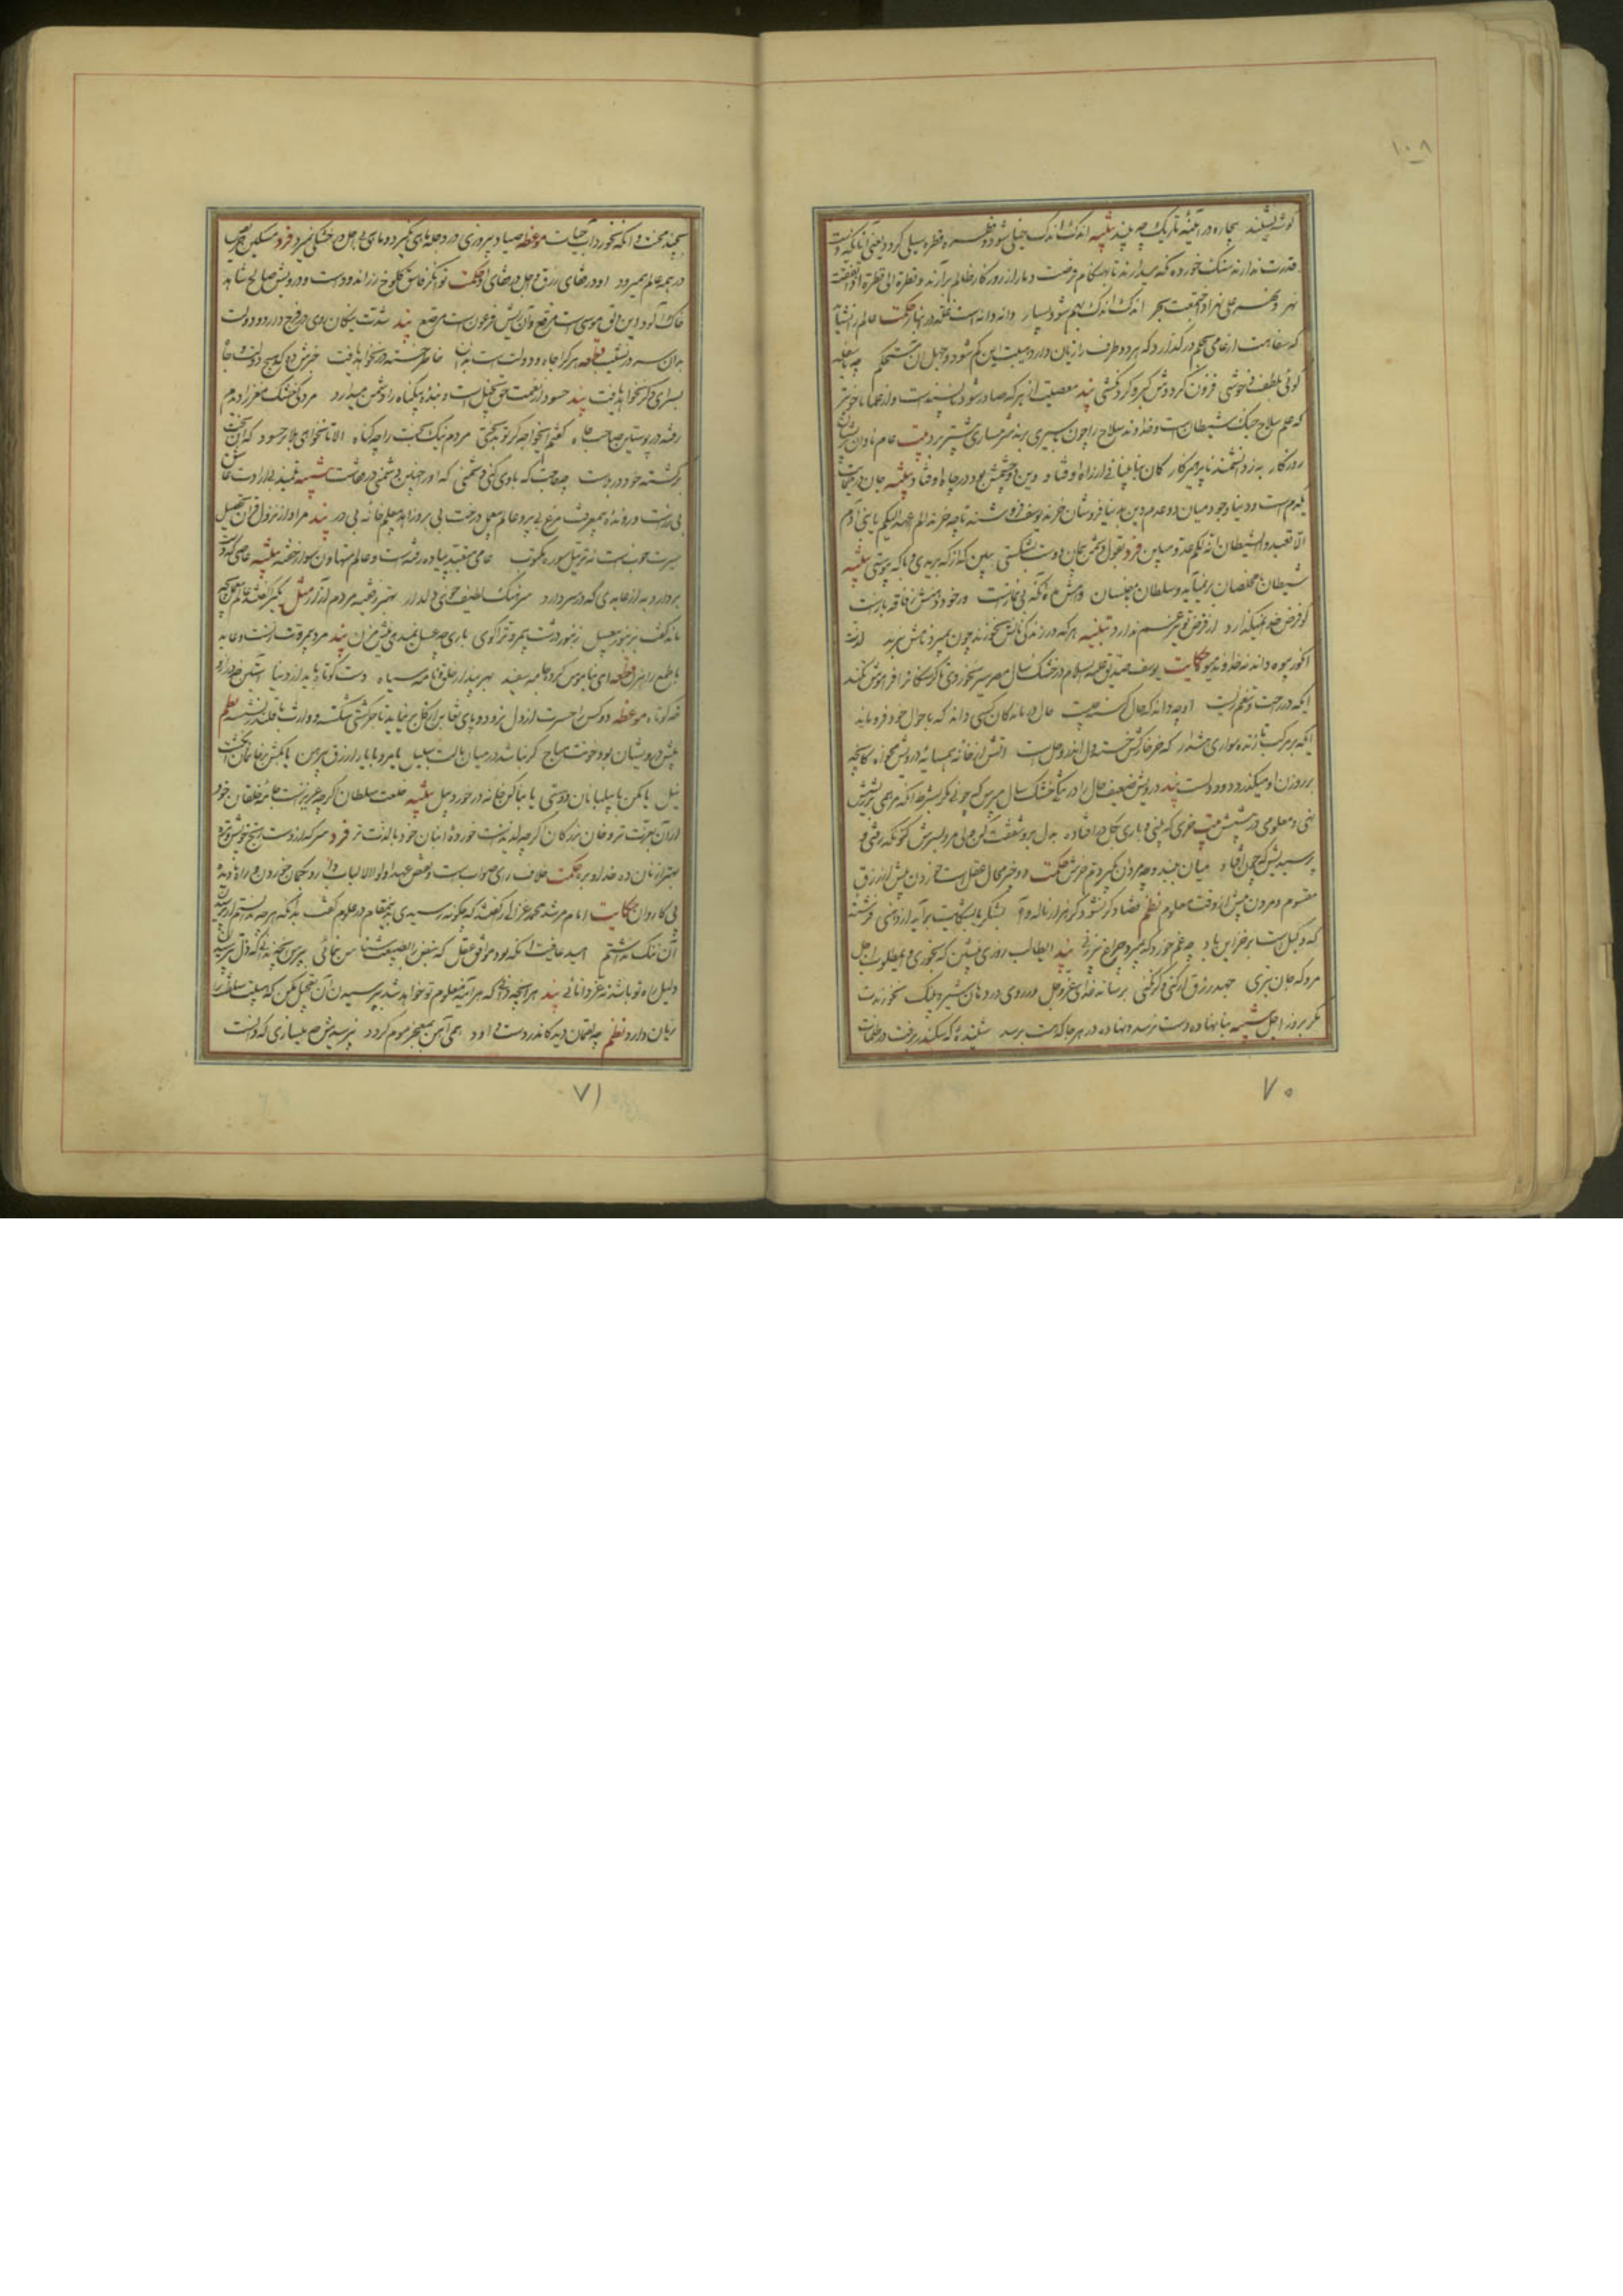 ۱۰۸
گوشه نشیند بیچاره در آینه تاریک چه بیند تنبیه اندک اندک خیلی شود و قطره قطره سیلی گردد یعنی آنانکه دست
قدرت ندارند سنگ خورده نگه میدارند تا بهنگام فرصت دمار از روزگار ظالم برآرند و قطرة الی قطرة اذا اتفقت
نهر و نهر علی نهر اذا اجتمعت بحر اندک اندک بهم شود بسیار دانه دانه است غله در انبار حکمت عالم را نشاید
که سفاهت از عامی بحلم درگذارد که هر دو طرف را زیان دارد هیبت این کم شود و جهل آن مستحکم چه با سفله
گوئی بلطف و خوشی فزون گرددش کبر و گردنکشی پند معصیت از هر که صادر شود ناپسند است و از علما ناخوبتر
که علم سلاح جنگ شیطان است و خداوند سلاح را چون باسیری برند شرمساری بیشتر برد بیت عام نادان پریشان
روزگار به ز دانشمند ناپرهیزکار کان بنابینائی از راه اوفتاد وین دو چشمش بود و در چاه اوفتاد تنبیه جان در حمایت
یکدم است و دنیا وجود میان دو عدم دین بدنیا فروشان خرند یوسف فروشند تا چه خرند الم اعهد الیکم یا بنی آدم
الا تعبدوا الشیطان انه لکم عدو مبین فرد بقول دشمن پیمان دوست بشکستی ببین که از که بریدی و با که پیوستی تنبیه
شیطان با مخلصان برنمیآید و سلطان با مفلسان وامش مده آنکه بی نمازست ورچه دهنش ز فاقه بازست
کو فرض خدا نمیگذارد از قرض تو نیز غم ندارد تنبیه هر که در زندگی نانش نخورند چون بمیرد نامش نبرند لذت
انگور بیوه داند نه خداوند میوه حکایت یوسف صدیق علیه السلام در خشک سال مصر سیر نخوردی تا گرسنگان را فراموش نکند
آنکه در راحت و تنعم زیست او چه داند که حال گرسنه چیست حال درماندگان کسی داند که باحوال خود فروماند
ایکه بر مرکب تازنده سواری هشدار که خر خارکش خسته دل اندر وحل است آتش از خانه همسایه درویش مخواه کانچه
بر روزن او میگذرد دود دلست پند درویش ضعیف حال را در تنگی خشک سال مپرس که چونی مگر بشرط آنکه مرهمی بر ریش
نهی و معلومی در پیشش بیت خری که بینی و باری بگل درافتاده بدل برو شفقت کن ولی مرو بسرش کنونکه رفتی و
پرسیدیش که چون افتاد میان ببند و چو مردان بگیر دم خرش حکمت دو چیز محال عقل است خوردن بیش از رزق
مقسوم و مردن پیش از وقت معلوم نظم قضا دگر نشود گر هزار ناله و آه بشکر یا بشکایت برآید از دهنی فرشته
که وکیل است بر خزاین باد چه غم خورد که بمیرد چراغ پیرزنی پند ایطالب روزی بنشین که بخوری و ای مطلوب اجل
مرو که جان نبری جهد رزق ار کنی و گر نکنی برساند خدای عزوجل ور روی در دهان شیر و پلنگ نخورندت
مگر بروز اجل تنبیه بنانهاده دست نرسد و نهاده در هر جا که هست برسد شنیده که سکندر برفت در ظلمات
۷۰
بچند محنت و آنکه نخورد آب حیات موعظه صیاد بی روزی در دجله ماهی نگیرد و ماهی بی اجل در خشکی نمیرد فرد مسکین حریص
در همه عالم همیرود او در قفای رزق و اجل در قفای او حکمت توانگر فاسق کلوخ زراندودست و درویش صالح شاهد
خاک آلود این دلق موسی است مرقع و آن ریش فرعون است مرصع پند شدت نیکان روی در فرج دارد و دولت
بدان سر در نشیب قطعه هر کرا جاه و دولت است بدان خاطر خسته در نخواهد یافت خبرش ده که هیچ دولت و جاه
بسرای دگر نخواهد یافت پند حسود از نعمت حق بخیل است و بنده بیگناه را دشمن میدارد مردکی خشک مغز را دیدم
رفته در پوستین صاحب جاه گفتم ایخواجه گر تو بدبختی مردم نیک بخت را چه گناه الا تا نخواهی بلا بر حسود که آن بخت
برگشته خود در بلاست چه حاجت که با وی کنی دشمنی که او را چنین دشمنی در قفاست تنبیه تلمیذ بی ارادت عاشق
بی زرست و رونده بی معرفت مرغ بی پر و عالم بی عمل درخت بی بر و زاهد بی علم خانه بی در پند مراد از نزول قرآن تحصیل
سیرت خوبست نه ترتیل سوره مکتوب عامی متعبد پیاده رفته است و عالم متهاون سوار خفته تنبیه عاصی که دست
بردارد به از عابدی که در سر دارد سرهنگ لطیف خوی دلدار بهتر ز فقیه مردم آزار مثل یکیرا گفتند عالم بی عمل بچه
ماند گفت بزنبور بی عسل زنبور درشت بی مروت را گوی باری چو عسل نمیدهی نیش مزن پند مرد بی مروت زنست و عابد
با طمع راهزن قطعه ای بناموس کرده جامه سفید بهر پندار خلق و نامه سیاه دست کوتاه باید از دنیا آستین چه دراز و
چه کوتاه موعظه دو کس را حسرت از دل نرود و پای تغابن از گل برنیاید تاجر کشتی شکسته و وارث با قلندر نشسته نظم
پیش درویشان بود خونت مباح گر نباشد در میان مالت سبیل یا مرو با یار ازرق پیرهن یا بکش بر خانمان انگشت
نیل یا مکن با پیلبانان دوستی یا بنا کن خانه در خورد پیل تنبیه خلعت سلطان اگرچه عزیزست جامه خلقان خود
از آن بعزت تر و خوان بزرگان اگرچه لذیذست خورده انبان خود بالذت تر فرد سرکه از دست رنج خویش و تره
بهتر از نان ده خدا و بره حکمت خلاف رای صوابست و نقض عهد اولوا الالباب دارو بگمان خوردن و راه نادیده
بی کاروان حکایت امام مرشد محمد غزالی را گفتند که چگونه رسیدی بدین مقام در علوم گفت بدانکه هر چه ندانستم از پرسیدن
آن ننگ نداشتم امید عافیت آنگه بود موافق عقل که نبض را بطبیعت شناس بنمائی بپرس هر چه ندانی که ذل پرسیدن
دلیل راه تو باشد بعز دانائی پند هر آنچه دانی که هر آینه معلوم تو خواهد شد بپرسیدن آن تعجیل مکن که هیبت سلطنت را
زیان دارد نظم چو لقمان دید کاندر دست داود همی آهن بمعجز موم گردد نپرسیدش چه میسازی که دانست
۷۱